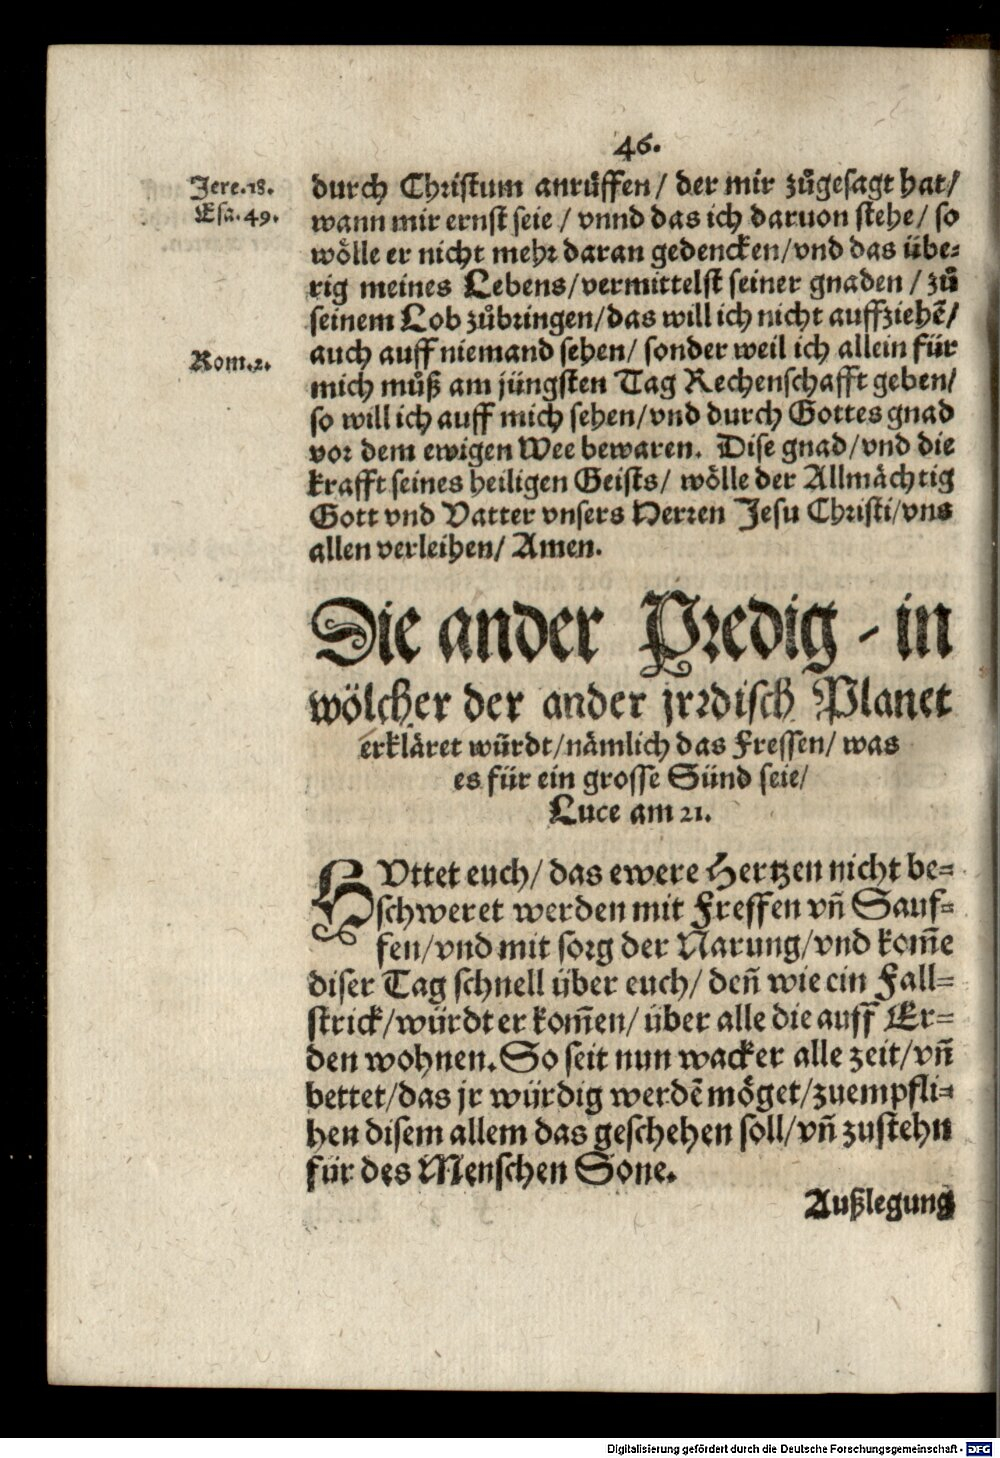 46.
Jere.18.
Esa.49.
durch Christum anrůffen/ der mir zůgesagt hat/
wann mir ernst seie / vnnd das ich daruon stehe/ so
wölle er nicht mehr daran gedencken/vnd das übe-
rig meines Lebens/vermittelst seiner gnaden / zů
seinem Lob zůbringen/das will ich nicht auffziehẽ/
Rom.2.
auch auff niemand sehen/ sonder weil ich allein für
mich můß am jüngsten Tag Rechenschafft geben/
so will ich auff mich sehen/vnd durch Gottes gnad
vor dem ewigen Wee bewaren. Dise gnad/vnd die
krafft seines heiligen Geists/ wölle der Allmächtig
Gott vnd Vatter vnsers Herren Jesu Christi/vns
allen verleihen/ Amen.
Die ander Predig - in
wölcher der ander jrrdisch Planet
erkläret würdt/nämlich das Fressen/ was
es für ein grosse Sünd seie/
Luce am 21.
HVttet euch/ das ewere Hertzen nicht be-
schweret werden mit Fressen vñ Sauf-
fen/vnd mit sorg der Narung/vnd kom̃e
diser Tag schnell über euch/ den̄ wie ein Fall-
strick/würdt er kom̃en/ über alle die auff Er-
den wohnen. So seit nun wacker alle zeit/vñ
bettet/das jr würdig werdẽ möget/zuempfli-
hen disem allem das geschehen soll/vñ zustehn
für des Menschen Sone.
Außlegung
Digitalisierung gefördert durch die Deutsche Forschungsgemeinschaft - DFG